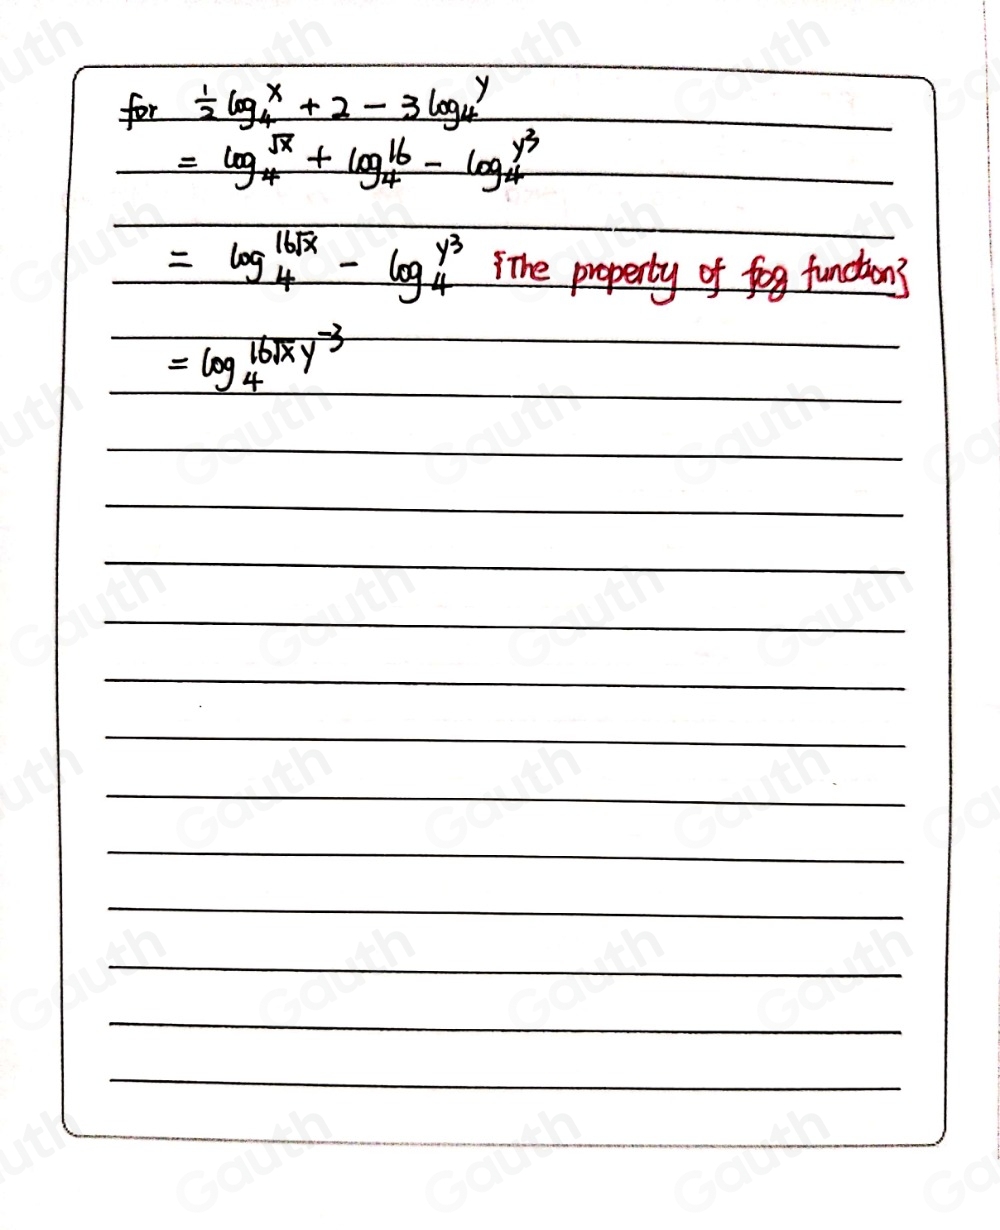 for ½ log₄ˣ + 2 − 3 log₄ʸ
= log₄^√x + log₄^16 − log₄^y³
= log₄^16√x − log₄^y³ {The property of fog function}
= log₄^16√x y⁻³
Gauth